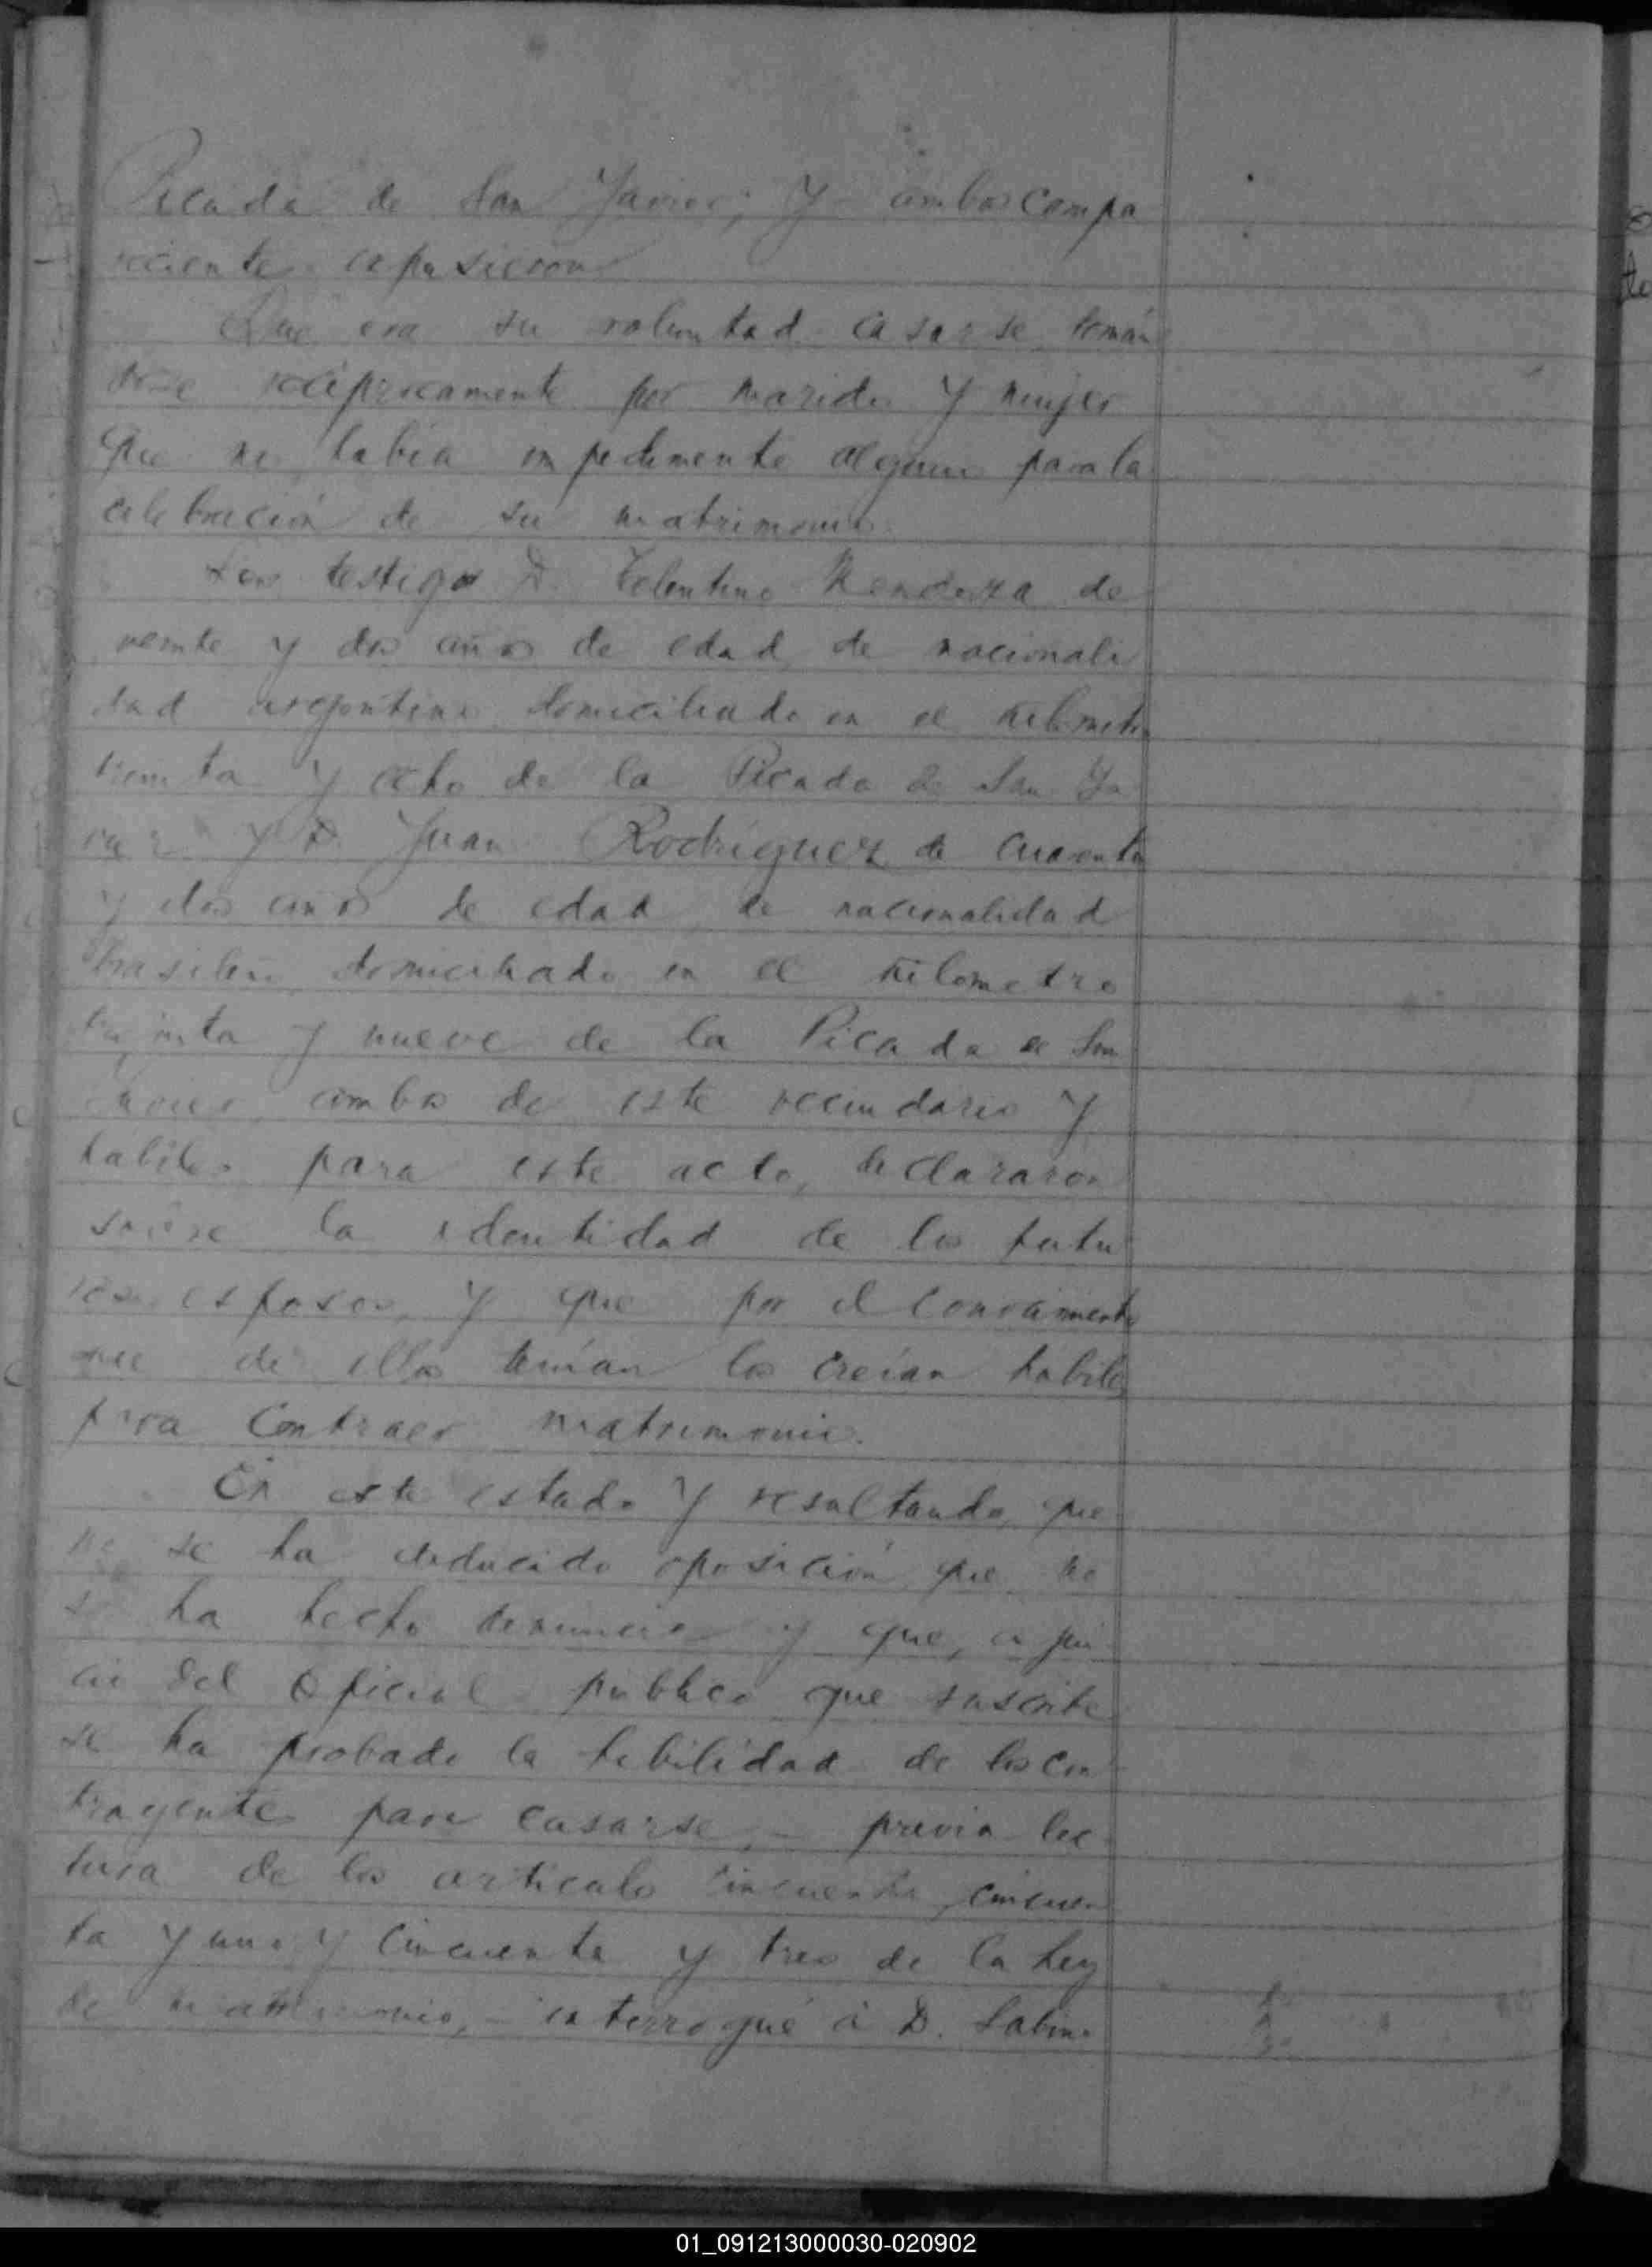 Picada de San Javier; y ambos compa
reciente expusieron
Que era su voluntad casarse, tomán
dose recíprocamente por marido y mujer
que no había impedimento alguno para la
celebración de su matrimonio.
Los testigos D. Tolentino Mendoza de
veinte y dos años de edad, de nacionali
dad argentina domiciliado en el kilometro
treinta y ocho de la Picada de San Ja
vier y D. Juan Rodriguez de cuarenta
y dos años de edad, de nacionalidad
brasilera domiciliado en el kilometro
treinta y nueve de la Picada de San
Javier, ambos de este vecindario y
habiles para este acto, declararon
sobre la identidad de los futu
ros esposos, y que por el conocimiento
que de ellos tenían los creían habiles
para contraer matrimonio.
En este estado y resultando, que
no se ha deducido oposición que no
se ha hecho denuncia y que, a jui
cio del oficial público que suscribe
se ha probado la habilidad de los con
trayentes para casarse, – previa lec
tura de los articulo cincuenta, cincuen
ta y uno y cincuenta y tres de la ley
de matrimonio, – interrogué á D. Sabino
01_091213000030-020902